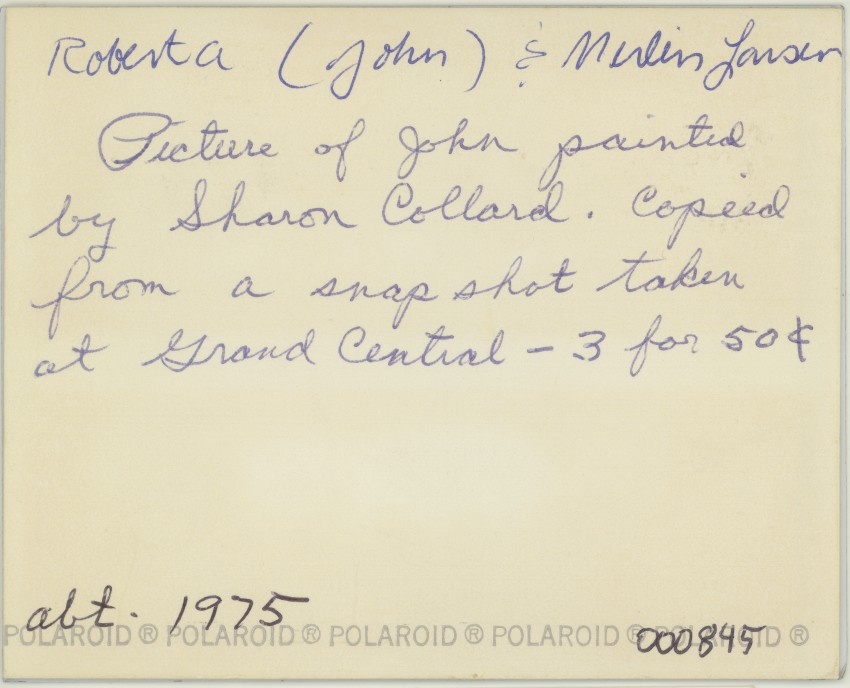 Roberta (John) & Merlin Larsen
Picture of John painted
by Sharon Collard. Copeied
from a snap shot taken
at Grand Central - 3 for 50¢
abt. 1975
POLAROID ® POLAROID ® POLAROID ® POLAROID ® POLAROID ®
000845